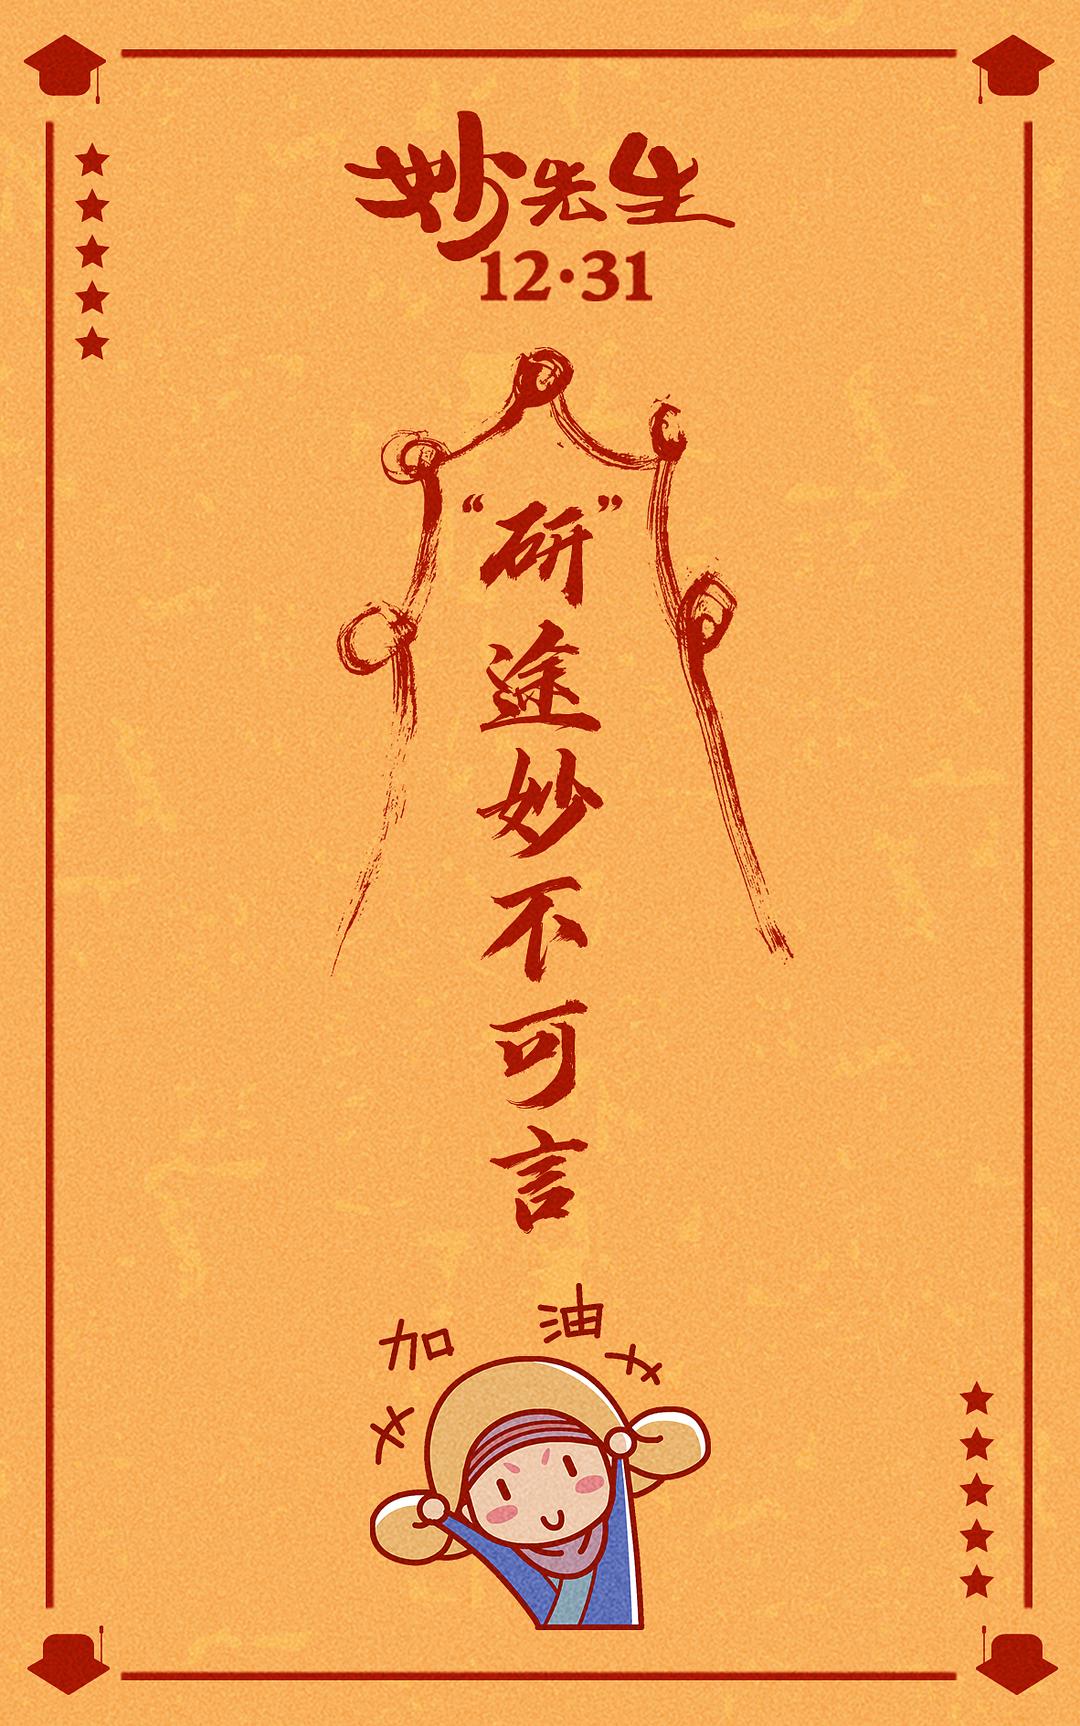 妙先生
12·31
“研”途妙不可言
加油